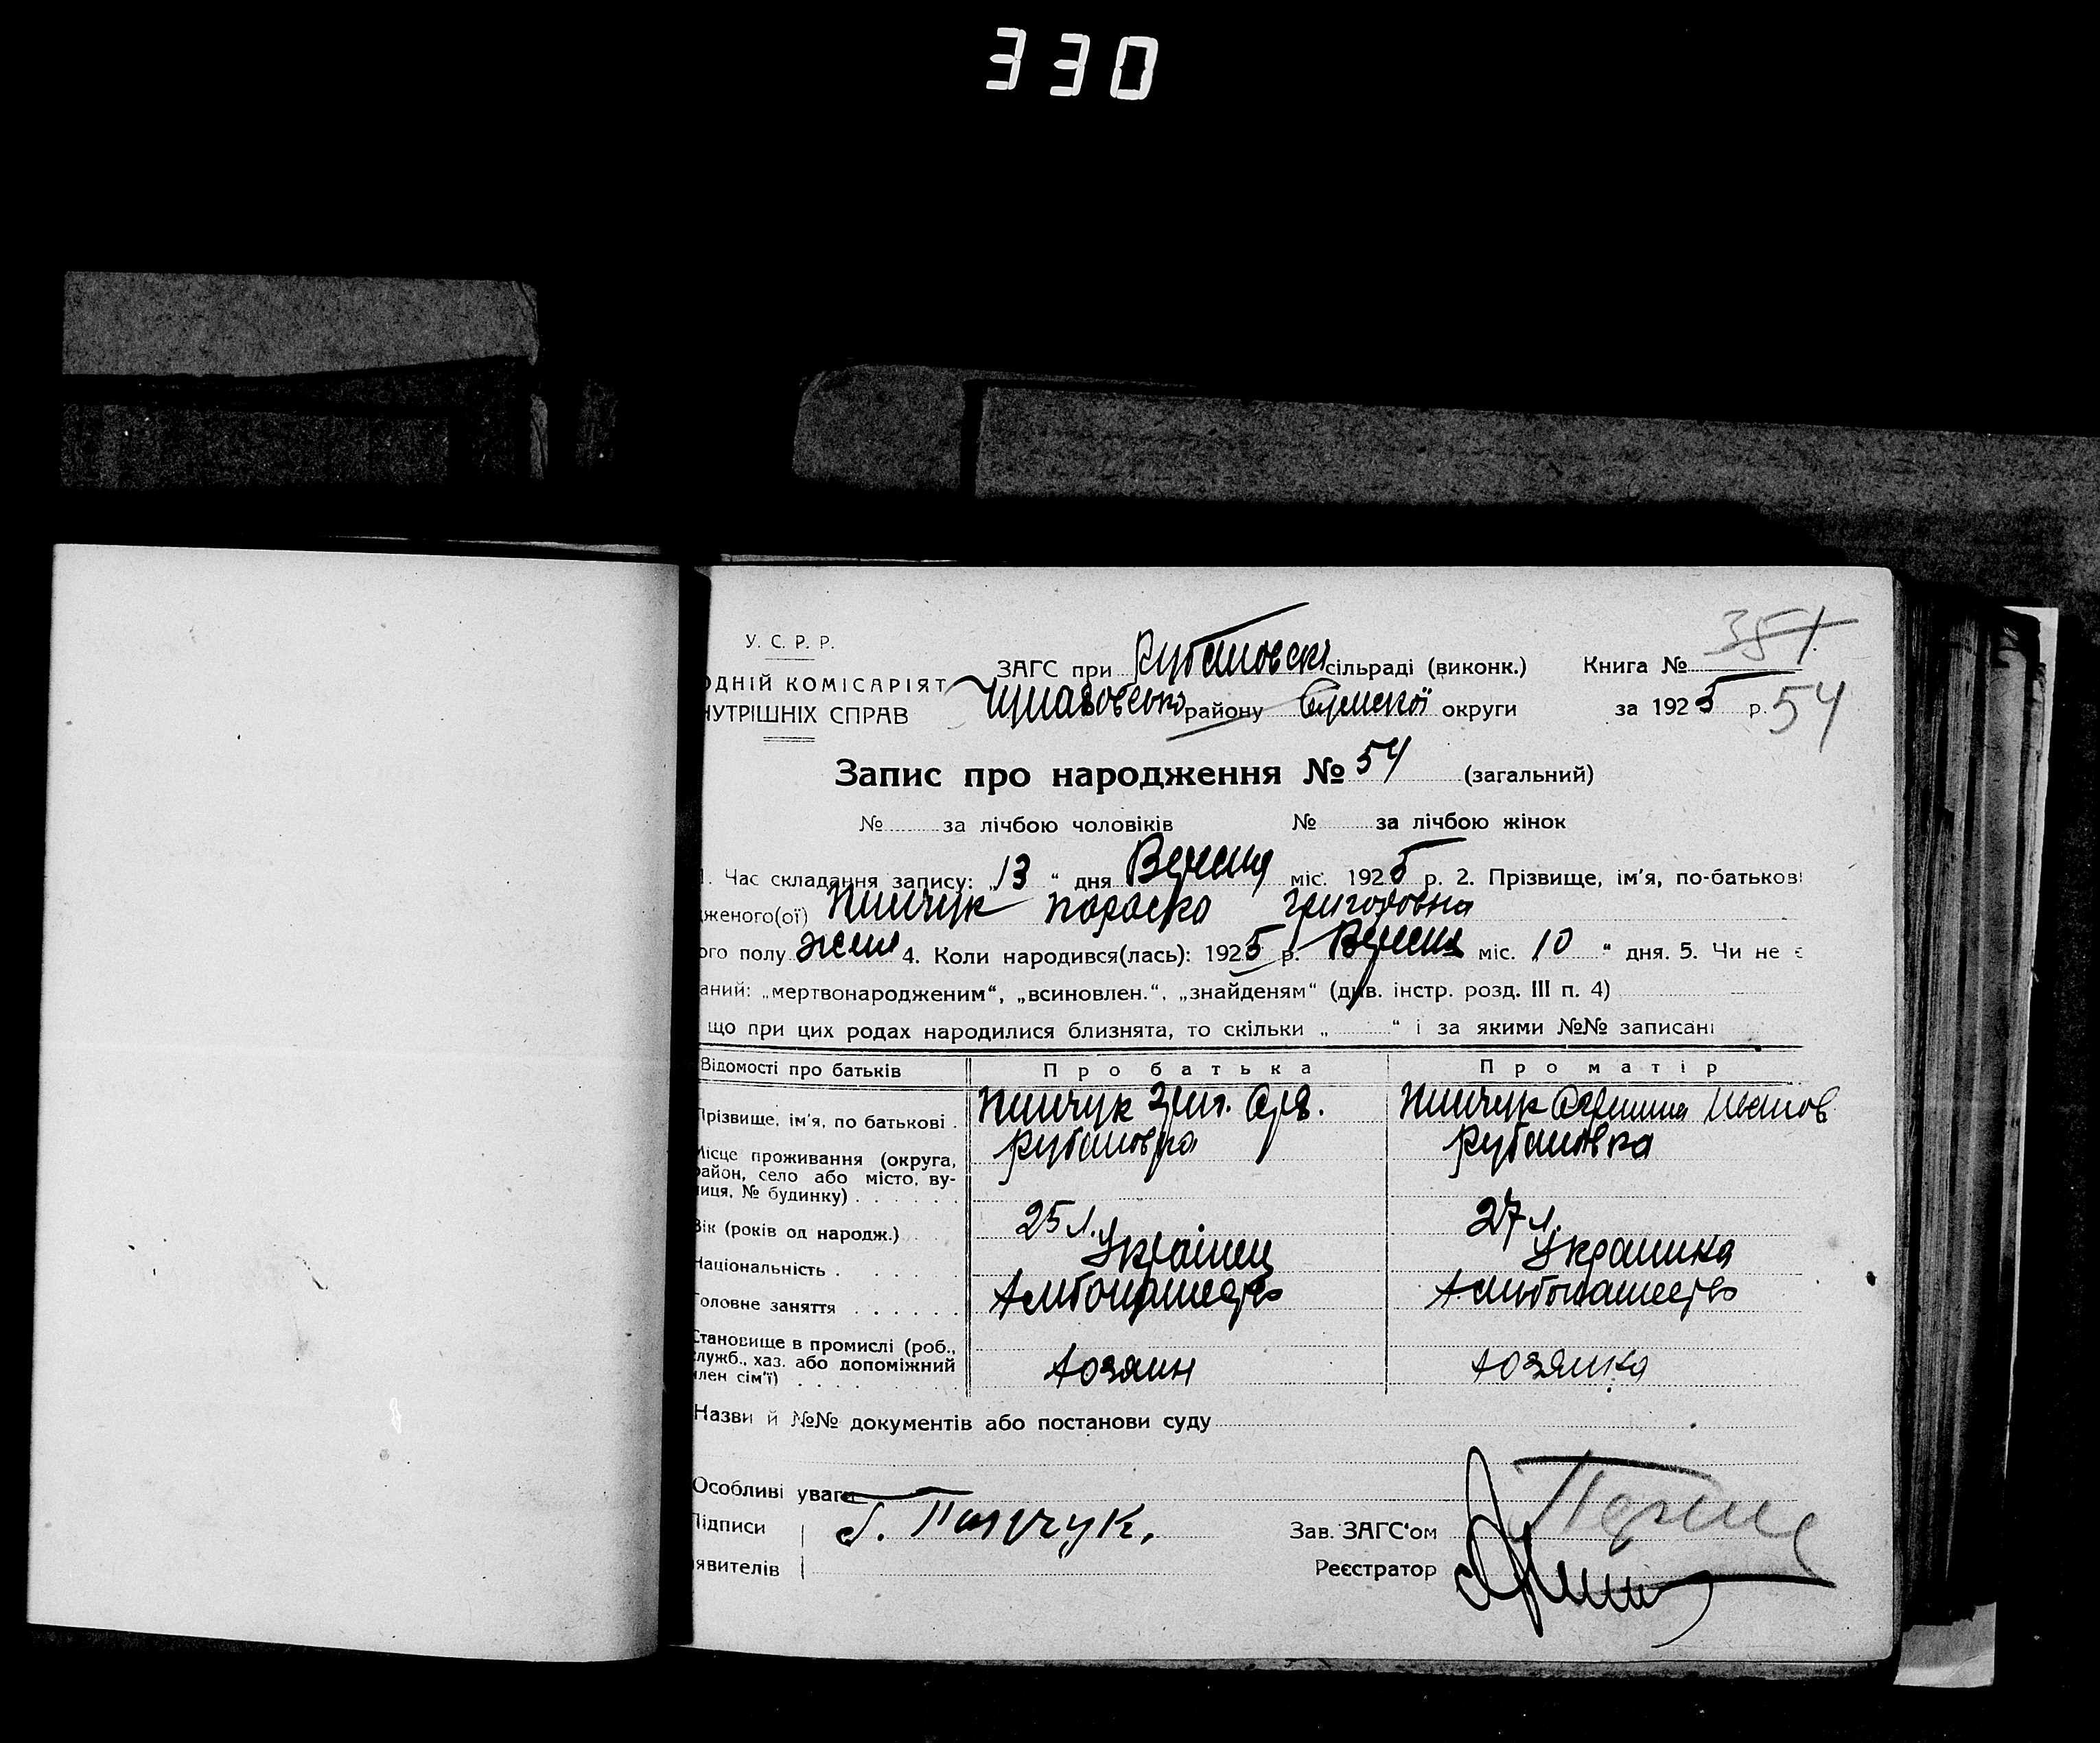 330
У. С. Р. Р.
ЗАГС при Рубановскі сільраді (виконк.) Книга № 351
ОДНІЙ КОМІСАРІЯТ
НУТРІШНІХ СПРАВ
району Сумскої округи за 1925 р. 54
Запис про народження № 54 (загальний)
№ за лічбою чоловіків № за лічбою жінок
1. Час складання запису: „13“ дня Вересня міс. 1925 р. 2. Прізвище, ім'я, по-батькові
дженого(ої) Пинчук Параско Григоровна
ого полу жен 4. Коли народився(лась): 1925 р. Вересня міс. 10 “ дня. 5. Чи не є
аний: „мертвонародженим“, „всиновлен.“, „знайденям“ (див. інстр. розд. III п. 4)
що при цих родах народилися близнята, то скільки „ “ і за якими №№ записані
Відомості про батьків Про батька Про матір
Прізвище, ім'я, по батькові . Пинчук Григ. Пинчук Иванов
Місце проживання (округа, Рубановка Рубановка
район, село або місто, ву-
лиця, № будинку)
Вік (років од народж.) 25 л. 27 л.
Національність . Українец Украинка
Головне заняття
Становище в промислі (роб.,
служб., хаз. або допоміжний хозяин хозяйка
член сім'ї)
Назви й №№ документів або постанови суду
Особливі уваги
Підписи Г. Пинчук.
Зав. ЗАГС'ом
явителів
Реєстратор